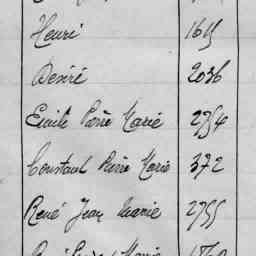 Henri 1615
Désiré 2036
Emile Pierre Marie 2754
Constant Pierre Marie 372
René Jean Marie 2755
Marie